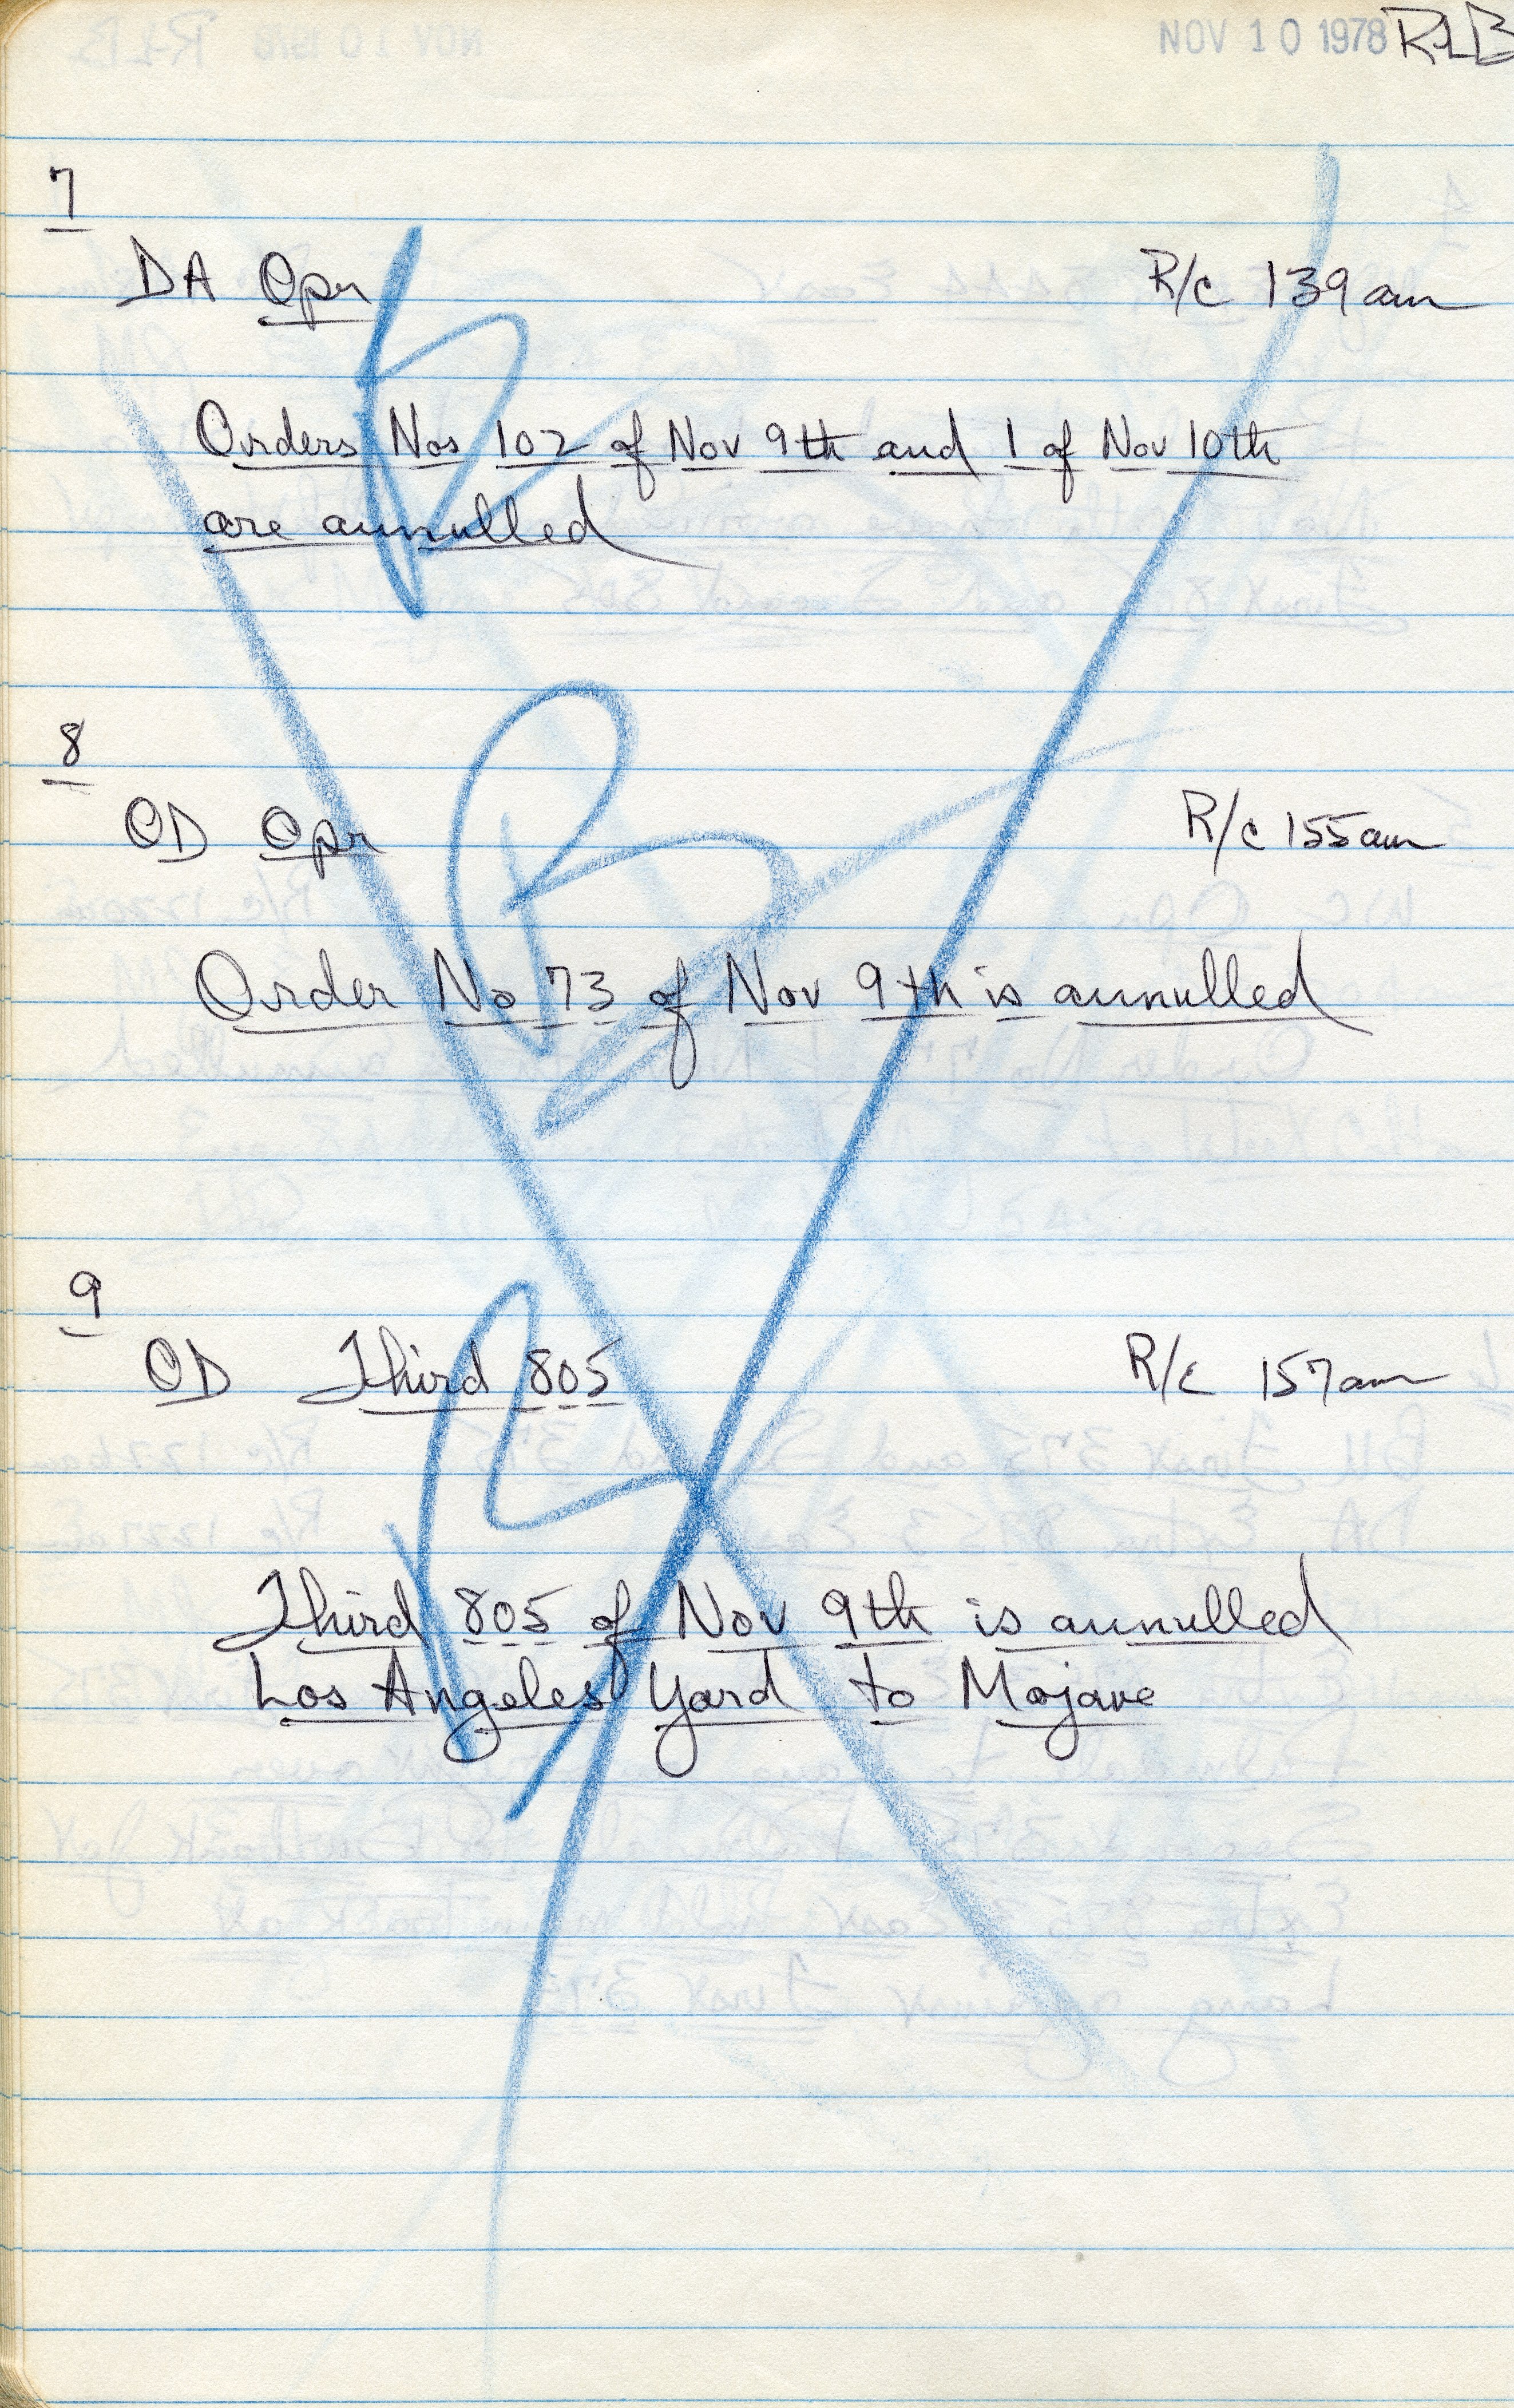 NOV 10 1978 RLB
7
DA Opr R/c 139am
Orders Nos 102 of Nov 9th and 1 of Nov 10th
are annulled
8
OD Opr R/c 155am
Order No 73 of Nov 9th is annulled
9
OD Third 805 R/c 157am
Third 805 of Nov 9th is annulled
Los Angeles Yard to Mojave